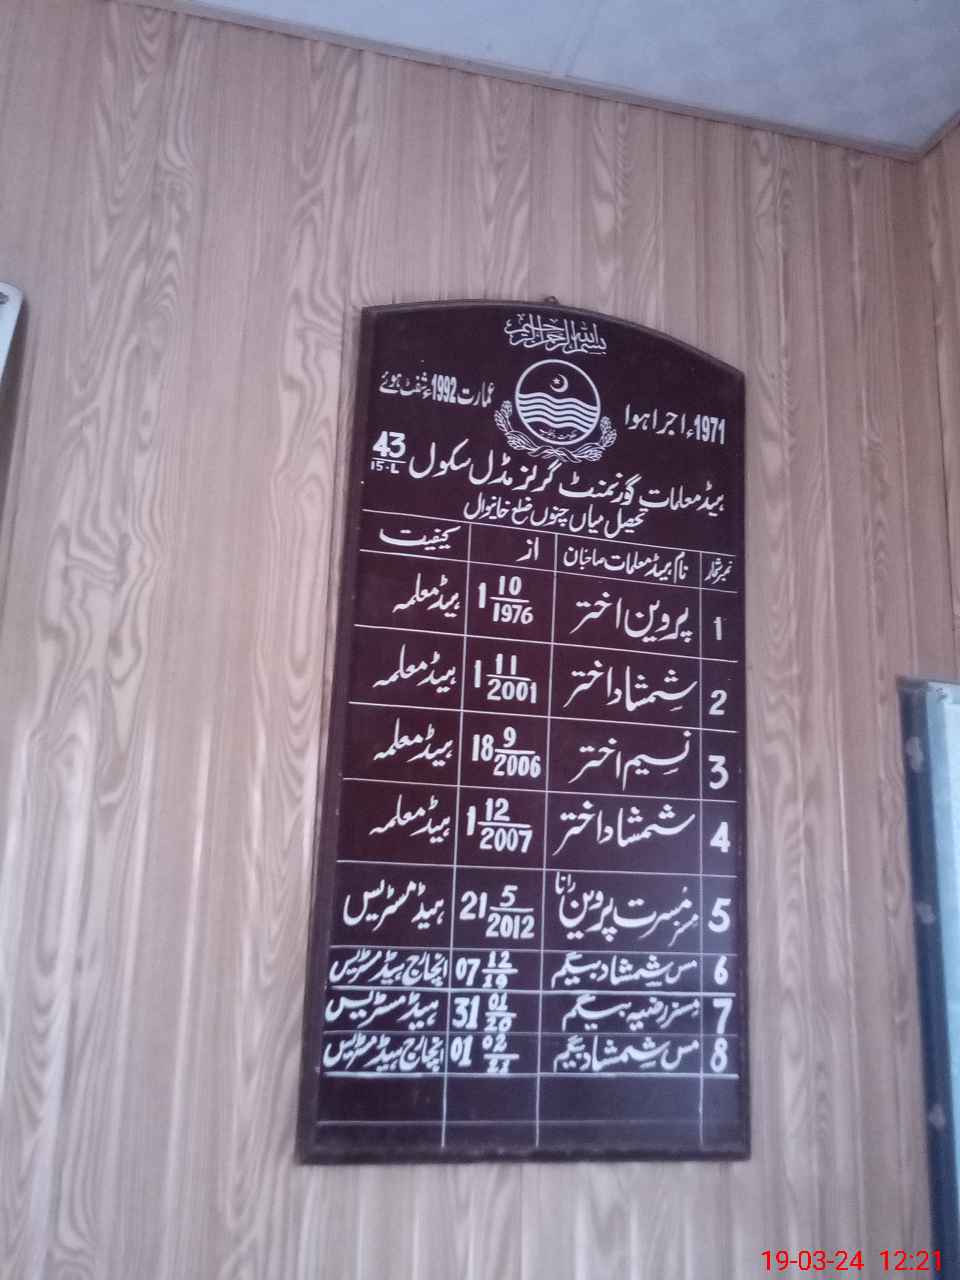 بسم الله الرحمن الرحيم
1971ء اجرا ہوا
عمارت 1992ء شفٹ ہوئے
حکومت پنجاب
ہیڈ معلمات گورنمنٹ گرلز مڈل سکول 43/15-L
تحصیل میاں چنوں ضلع خانیوال
نمبر شمار نام ہیڈ معلمات صاحبان از کیفیت
1 پروین اختر 1 10/1976 ہیڈ معلمہ
2 شمشاد اختر 1 11/2001 ہیڈ معلمہ
3 نسیم اختر 18 9/2006 ہیڈ معلمہ
4 شمشاد اختر 1 12/2007 ہیڈ معلمہ
5 مسز مسرت پروین رانا 21 5/2012 ہیڈ مسٹریس
6 مس شمشاد بیگم 07 12/19 انچارج ہیڈ مسٹریس
7 مسز رضیہ بیگم 31 01/20 ہیڈ مسٹریس
8 مس شمشاد بیگم 01 02/21 انچارج ہیڈ مسٹریس
19-03-24 12:21